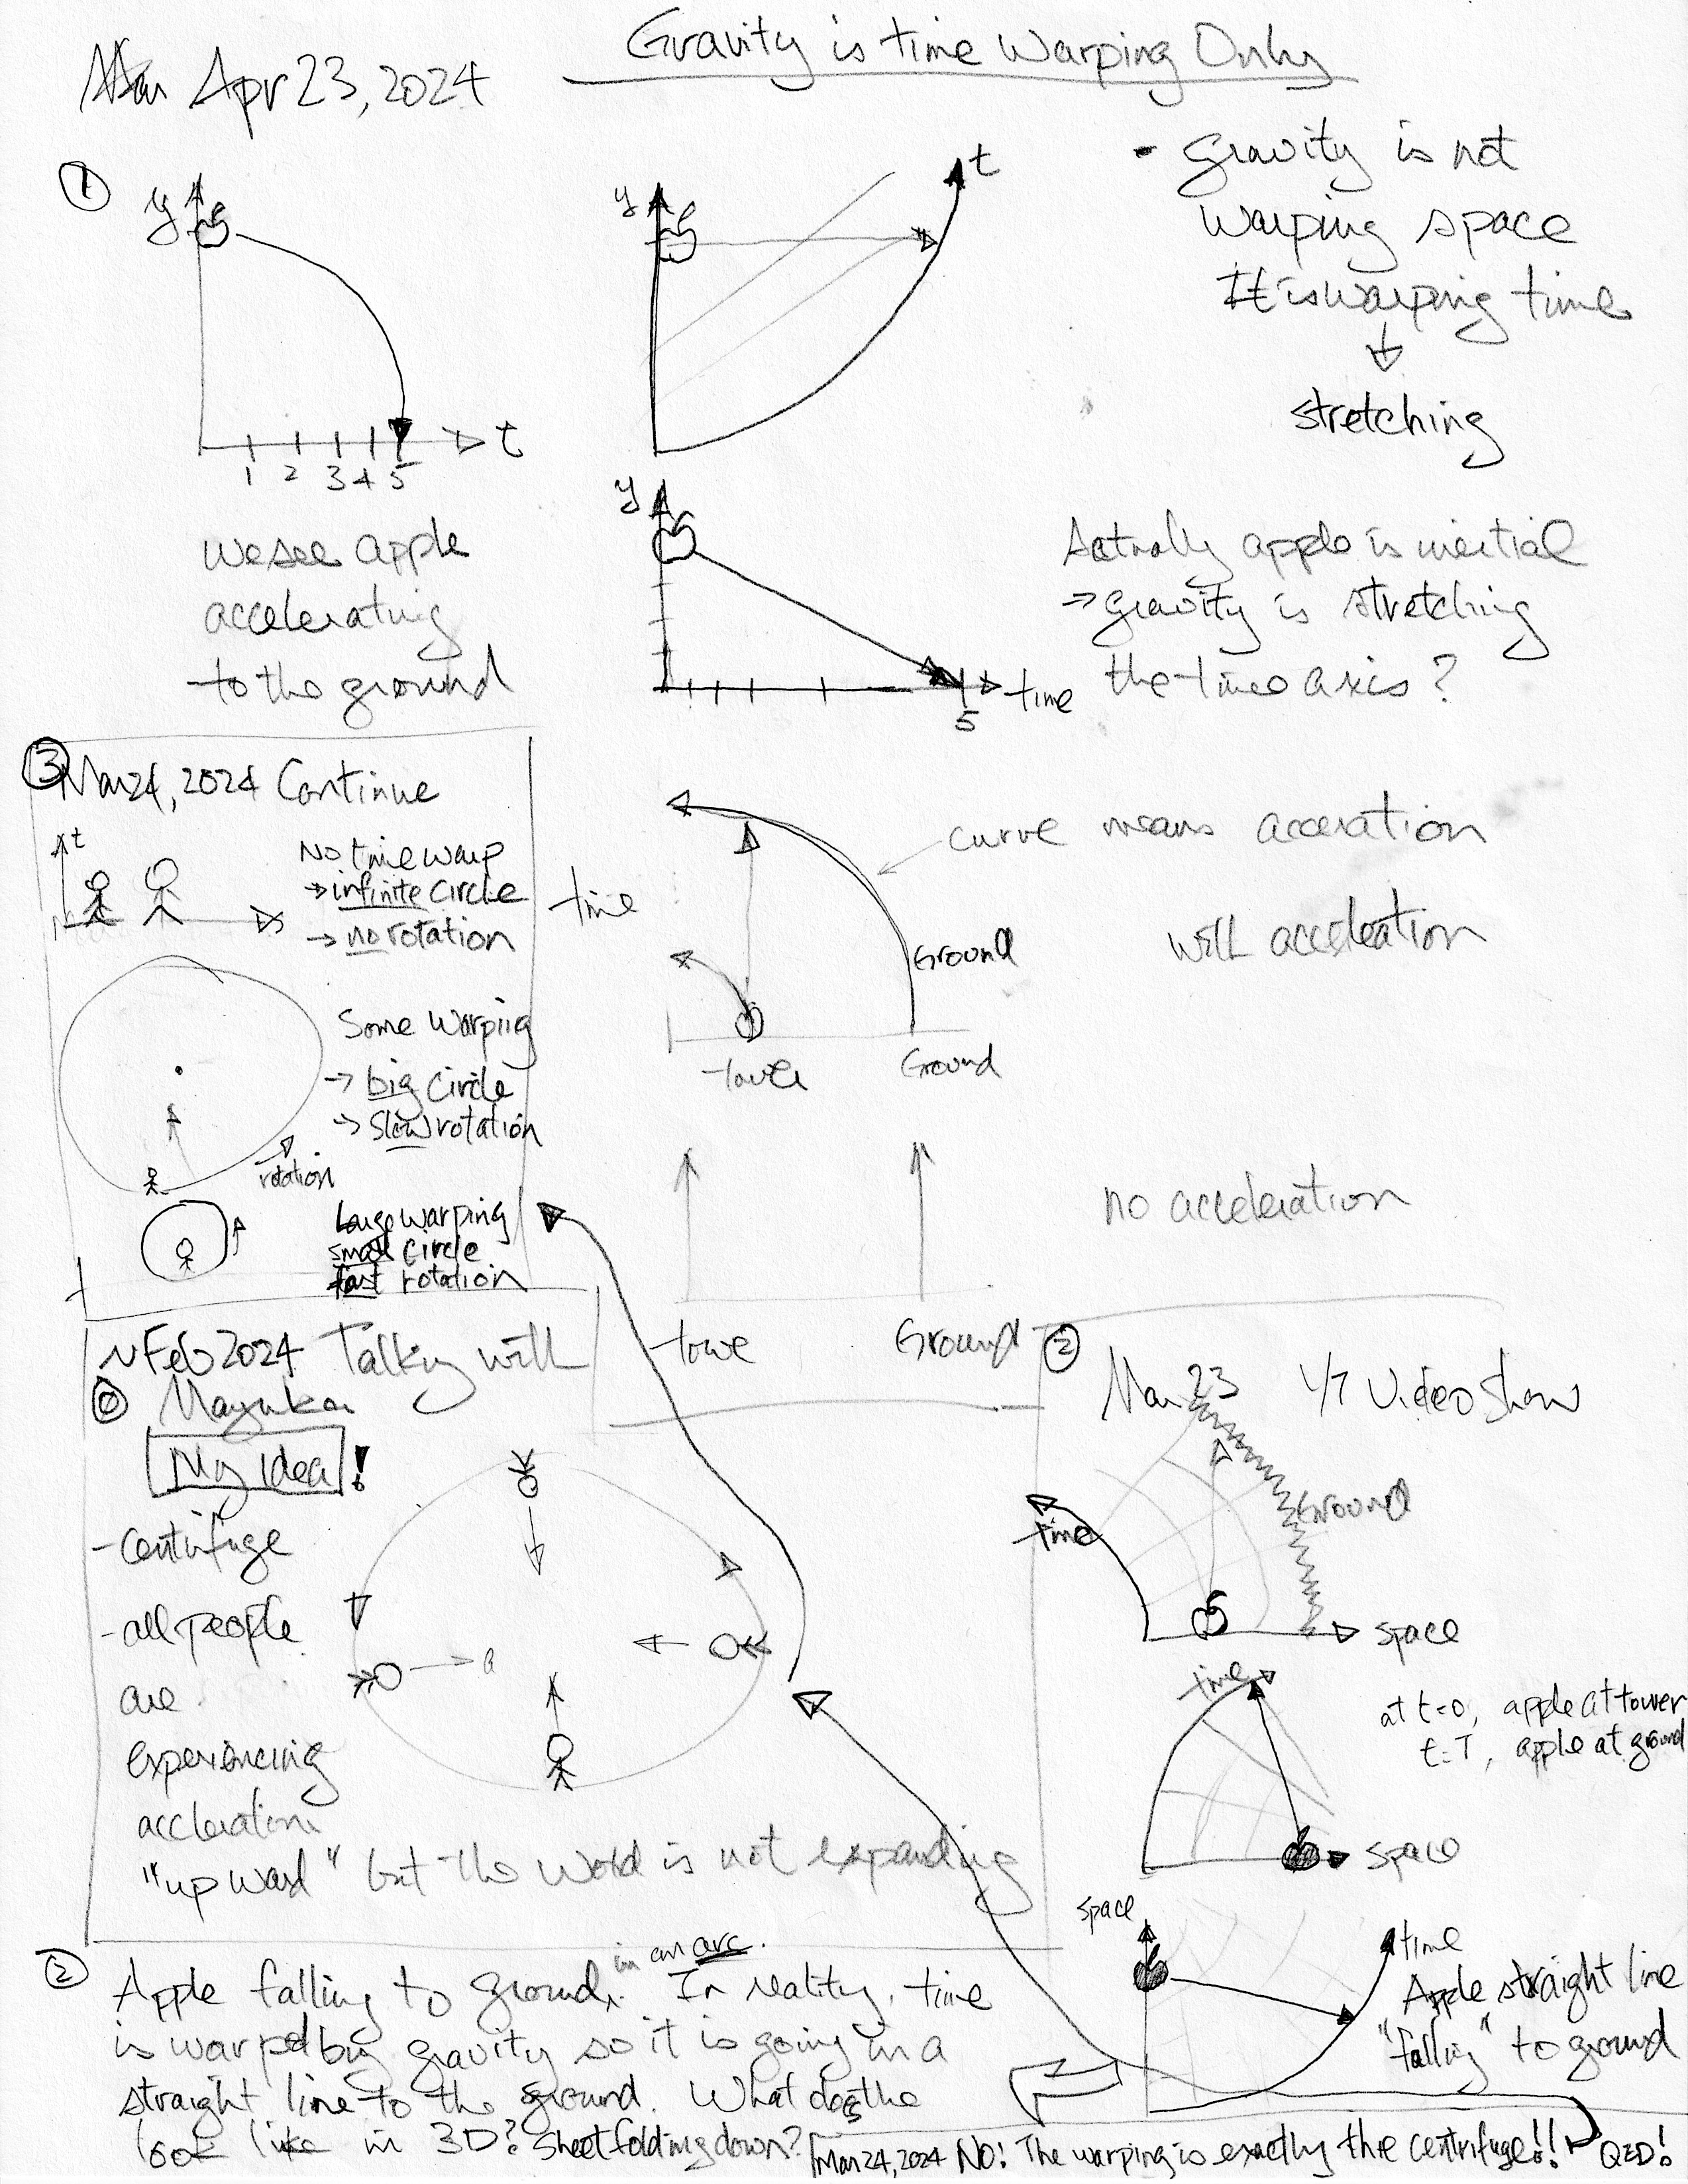 Gravity is time Warping Only
Apr 23, 2024
①
y
t
1 2 3 4 5
we see apple
accelerating
to the ground
y
t
- gravity is not
warping space
It is warping time
stretching
y
time
5
Actually apple is inertial
→ gravity is stretching
the time axis?
③ Mar 24, 2024 Continue
t
No time warp
→ infinite circle
→ no rotation
Some Warping
→ big circle
→ slow rotation
rotation
Large warping
small circle
fast rotation
time
curve means acceration
Ground
will acceleation
Tower
Ground
no acceleration
Towe
Ground
~Feb 2024 Talking with
⓪ Mayuka
My idea!
- Centrifuge
- all people
are
experiencing
accleration
"upward" but the World is not expanding
a
②
Mar 23 1/7 Video Show
Ground
time
space
time
at t=0, apple at tower
t=T, apple at ground
space
space
time
Apple straight line
"falling" to ground
② Apple falling to ground in an arc. In reality, time
is warped by gravity so it is going in a
straight line to the ground. What does the
look like in 3D? Sheet folding down?
Mar 24, 2024 NO! The warping is exactly the centrifuge!! QED!